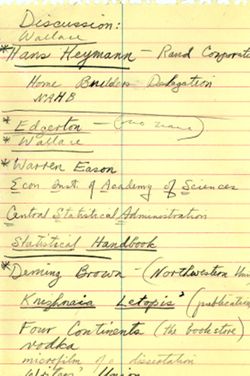 Discussion:
Wallace
*Hans Heymann - Rand Corporate
Home Builders Delegation
NAHB
* Edgerton -
* Wallace
* Warren Eason
Econ Inst. of Academy of Sciences
Central Statistical Administration
Statistical Handbook
*Deming Brown - (Northwestern Un
Knizhnaia Letopis' (publicati
Four Continents (the book store)
vodka
microfilm of a dissertation
Writers' Union